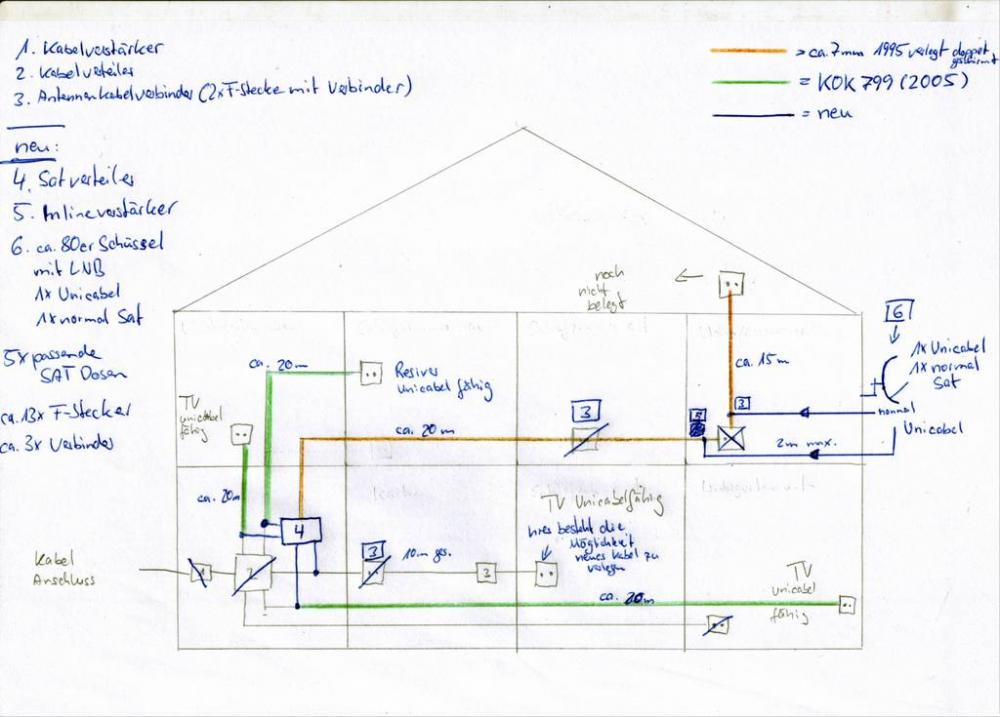 1. Kabelverstärker
2. Kabelverteiler
3. Antennenkabelverbinder (2xF-Stecke mit Verbinder)
= ca. 7mm 1995 verlegt doppelt geschirmt
= KOK 799 (2005)
= neu
neu:
4. Satverteiler
5. Inlineverstärker
6. ca. 80er Schüssel
mit LNB
1x Unicabel
1x normal Sat
5x passende
SAT Dosen
ca. 13x F-Stecker
ca. 3x Verbinder
noch
nicht
belegt
6
1x Unicabel
1x normal
Sat
ca. 15m
ca. 20m
Resiver
unicabel fähig
TV
unicabel
fähig
3
ca. 20m
3
normal
Unicabel
2m max.
ca. 20m
4
TV Unicabelfähig
hier besteht die
Möglichkeit
neues Kabel zu
verlegen
Kabel
Anschluss
1
2
3
10m ges.
3
ca. 20m
TV
unicabel
fähig